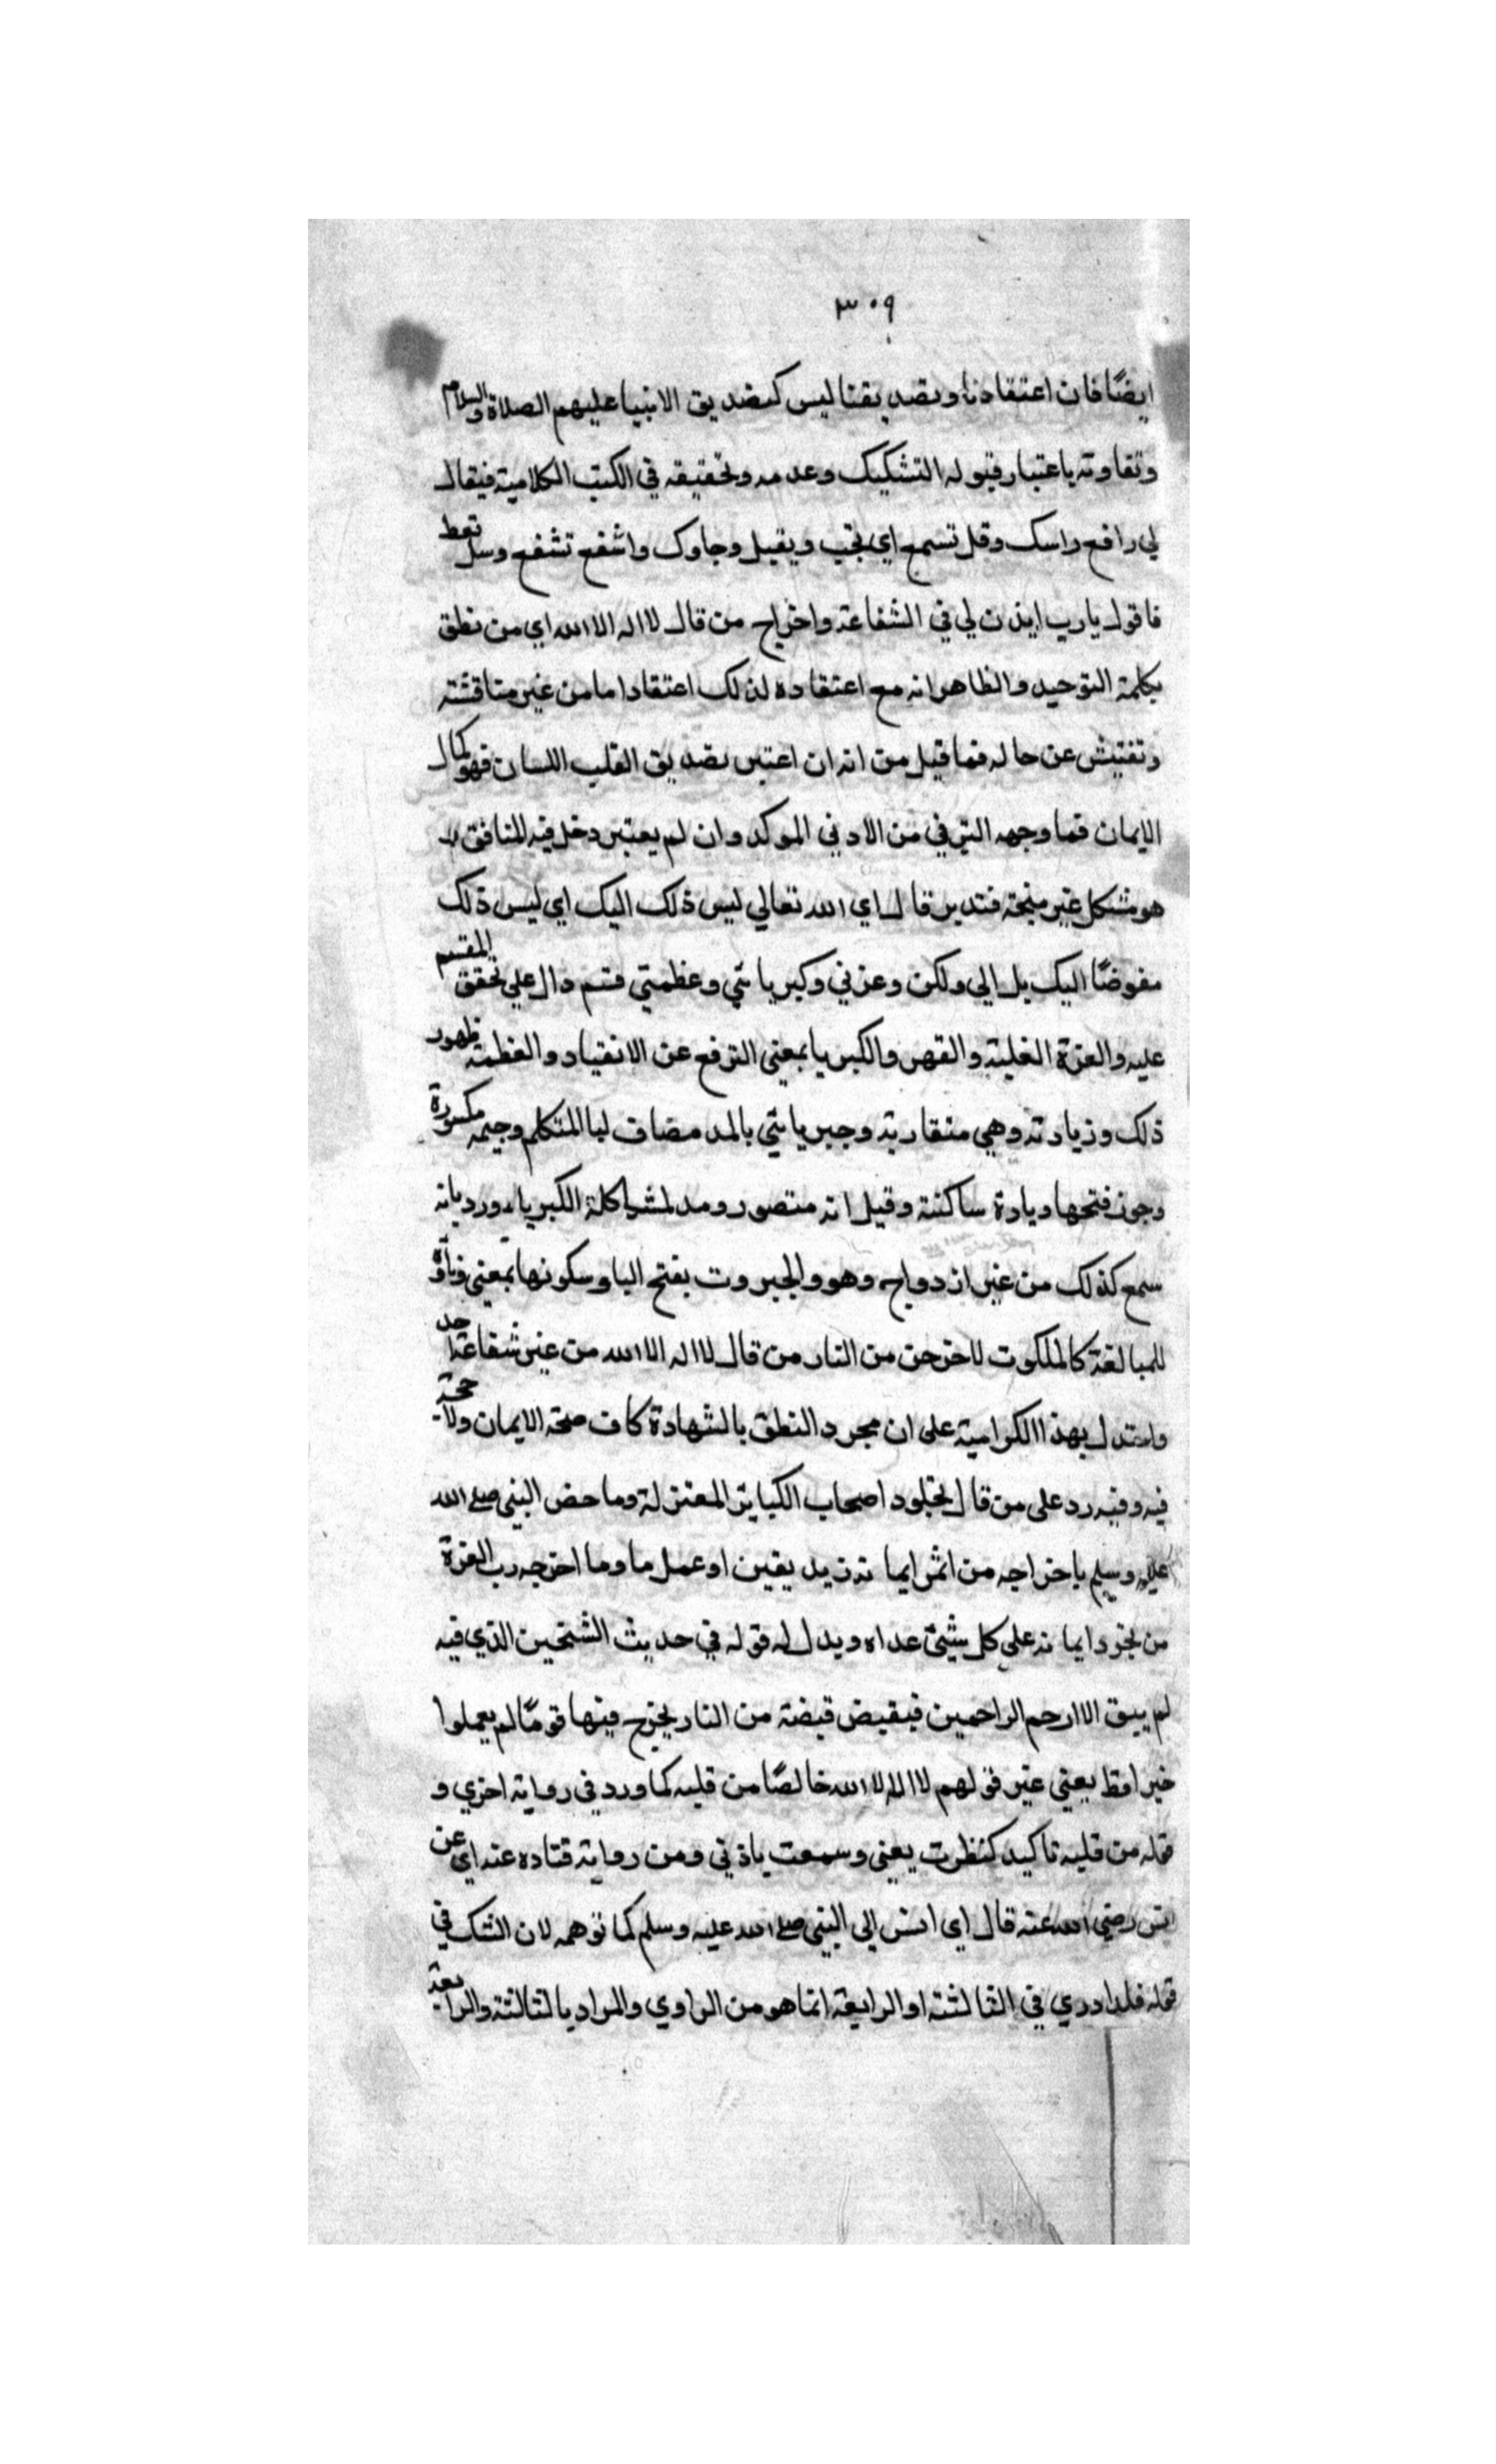 ٣٠٩
ايضًا فان اعتقادنا وتصديقنا ليس كتصديق الانبيا عليهم الصلاة والسلام
وتفاوته باعتبار قبوله التشكيك وعدمه وتحقيقه في الكتب الكلامية فيقال
لي رافع راسك وقل تسمع اي تجب ويقبل وجاوك واشفع تشفع وسل تعط
فاقول يارب ايذن لي في الشفاعة واخراج من قال لا اله الا الله اي من نطق
بكلمة التوحيد والظاهر انه مع اعتقاده لذلك اعتقادا ما من غير مناقشة
وتفتيش عن حاله فما قيل من انه ان اعتبر تصديق القلب اللسان فهو كمال
الايمان فما وجهه الترقي من الادني الموكد وان لم يعتبر دخل فيه المنافق بل
هو مشكل غير متجه فتدبر قال اي الله تعالي ليس ذلك اليك اي ليس ذلك
مفوضًا اليك بل الي ولكن وعزتي وكبريائي وعظمتي قسم دال علي تحقق المقسم
عليه والعزة الغلبة والقهر والكبريا بمعني الترفع عن الانقياد والعظمة ظهور
ذلك وزيادته وهي متقاربة وجبريائي بالمد مضاف ليا المتكلم وجيمه مكسورة
وجوز فتحها وياوة ساكنة وقيل انه متصور ومد لمشاكلة الكبريا ورد بانه
سمع كذلك من غير ازدواج وهو والجبروت بفتح البا وسكونها بمعني وتاؤه
للمبالغة كالملكوت لاخرجن من النار من قال لا اله الا الله من غير شفاعة احد
واستدل بهذا الكرامية على ان مجرد النطق بالشهادة كاف صحة الايمان ولا حجة
فيه وفيه رد على من قال بخلود اصحاب الكباير المعتزلة وما خص النبي صلى الله
عليه وسلم باخراجه من اثمر ايمانه زيد يقين او عمل ما وما اخرجه رب العزة
من تجرد ايمانه علي كل شيئ عداه ويدل له قوله في حديث الشيخين الذي فيه
لم يبق الا ارحم الراحمين فيقبض قبضة من النار يخرج فيها قومًا لم يعملوا
خيرا قط يعني غير قولهم لا اله الا الله خالصًا من قلبه كما ورد في رواية اخري و
قوله من قلبه تاكيد كنظرت بعيني وسمعت باذني ومن رواية قتاده عنه اي عن
انس رضي الله عنه قال اي انس الي النبي صلى الله عليه وسلم كما توهمه لان الشك في
قوله فلا ادري في الثالثة او الرابعة انما هو من الراوي والمراد بالثالثة والرابعة